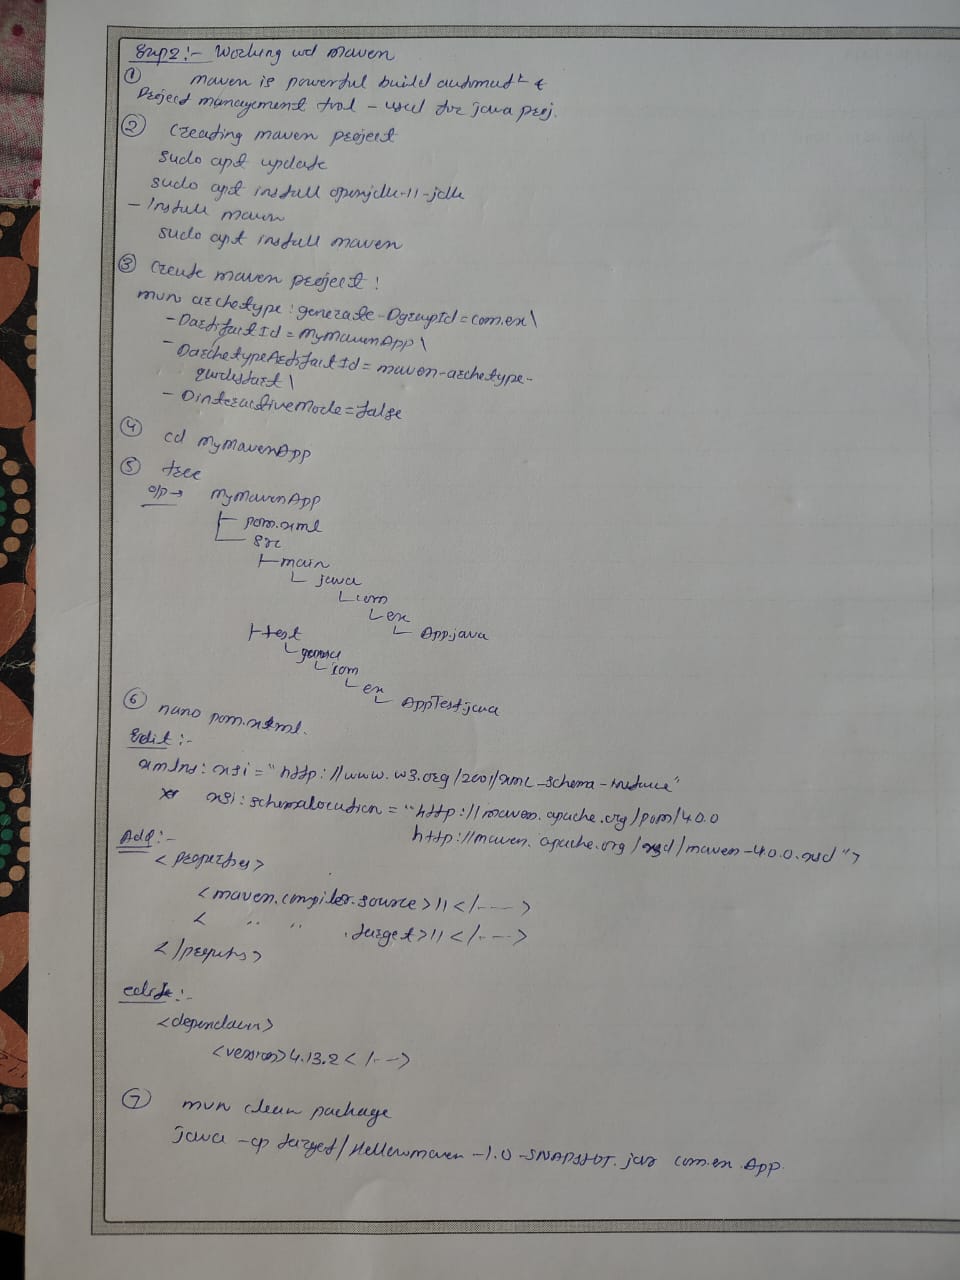 Exp2:- Working wd maven
① maven is powerful build automatn &
Project management tool - used for java proj.
② Creating maven project
sudo apt update
sudo apt install openjdk-11-jdk
- Install maven
sudo apt install maven
③ Create maven project:
mvn archetype:generate -DgroupId=com.ex\
-DartifactId=MyMavenApp\
-DarchetypeArtifactId=maven-archetype-
quickstart\
-DinteractiveMode=false
④ cd MyMavenApp
⑤ tree
o/p→ MyMavenApp
├ pom.xml
└ src
├ main
└ java
└ com
└ ex
└ App.java
├ test
└ java
└ com
└ ex
└ AppTest.java
⑥ nano pom.xml.
Edit:-
xmlns:xsi="http://www.w3.org/2001/XML_Schema-instance"
xsi:schemalocation="http://maven.apache.org/pom/4.0.0
http://maven.apache.org/xsd/maven-4.0.0.xsd">
Add:-
<properties>
<maven.compiler.source>11</--->
< " " .target>11</--->
</properties>
edit:-
<dependency>
<version>4.13.2</-->
⑦ mvn clean package
java -cp target/Hellowmaven-1.0-SNAPSHOT.jar com.ex.App